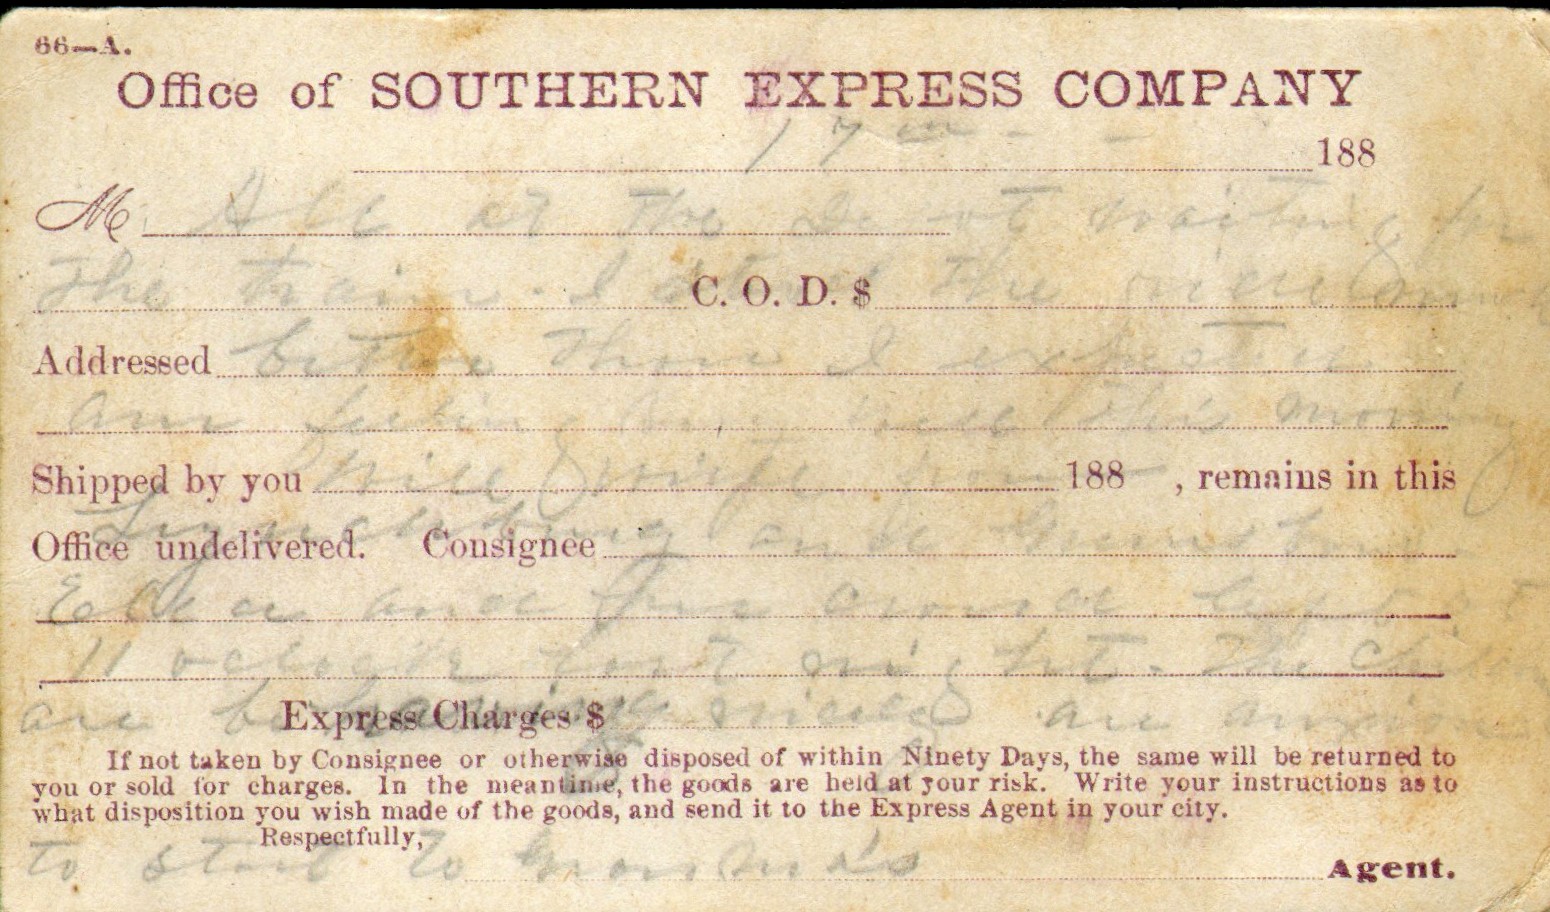 66—A.
Office of SOUTHERN EXPRESS COMPANY
17 188
M All at the Depot waiting for
the train. I stood the ride C. O. D. $
Addressed better than I expected
am feeling very well this morning
Shipped by you Will write from 188 , remains in this
Lynchburg and
Office undelivered. Consignee
Ella and Jim came by at
11 oclock last night. The children
are behaving nicely are anxious
Express Charges $
If not taken by Consignee or otherwise disposed of within Ninety Days, the same will be returned to
you or sold for charges. In the meantime, the goods are held at your risk. Write your instructions as to
what disposition you wish made of the goods, and send it to the Express Agent in your city.
Respectfully,
to start to Grandma's
Agent.